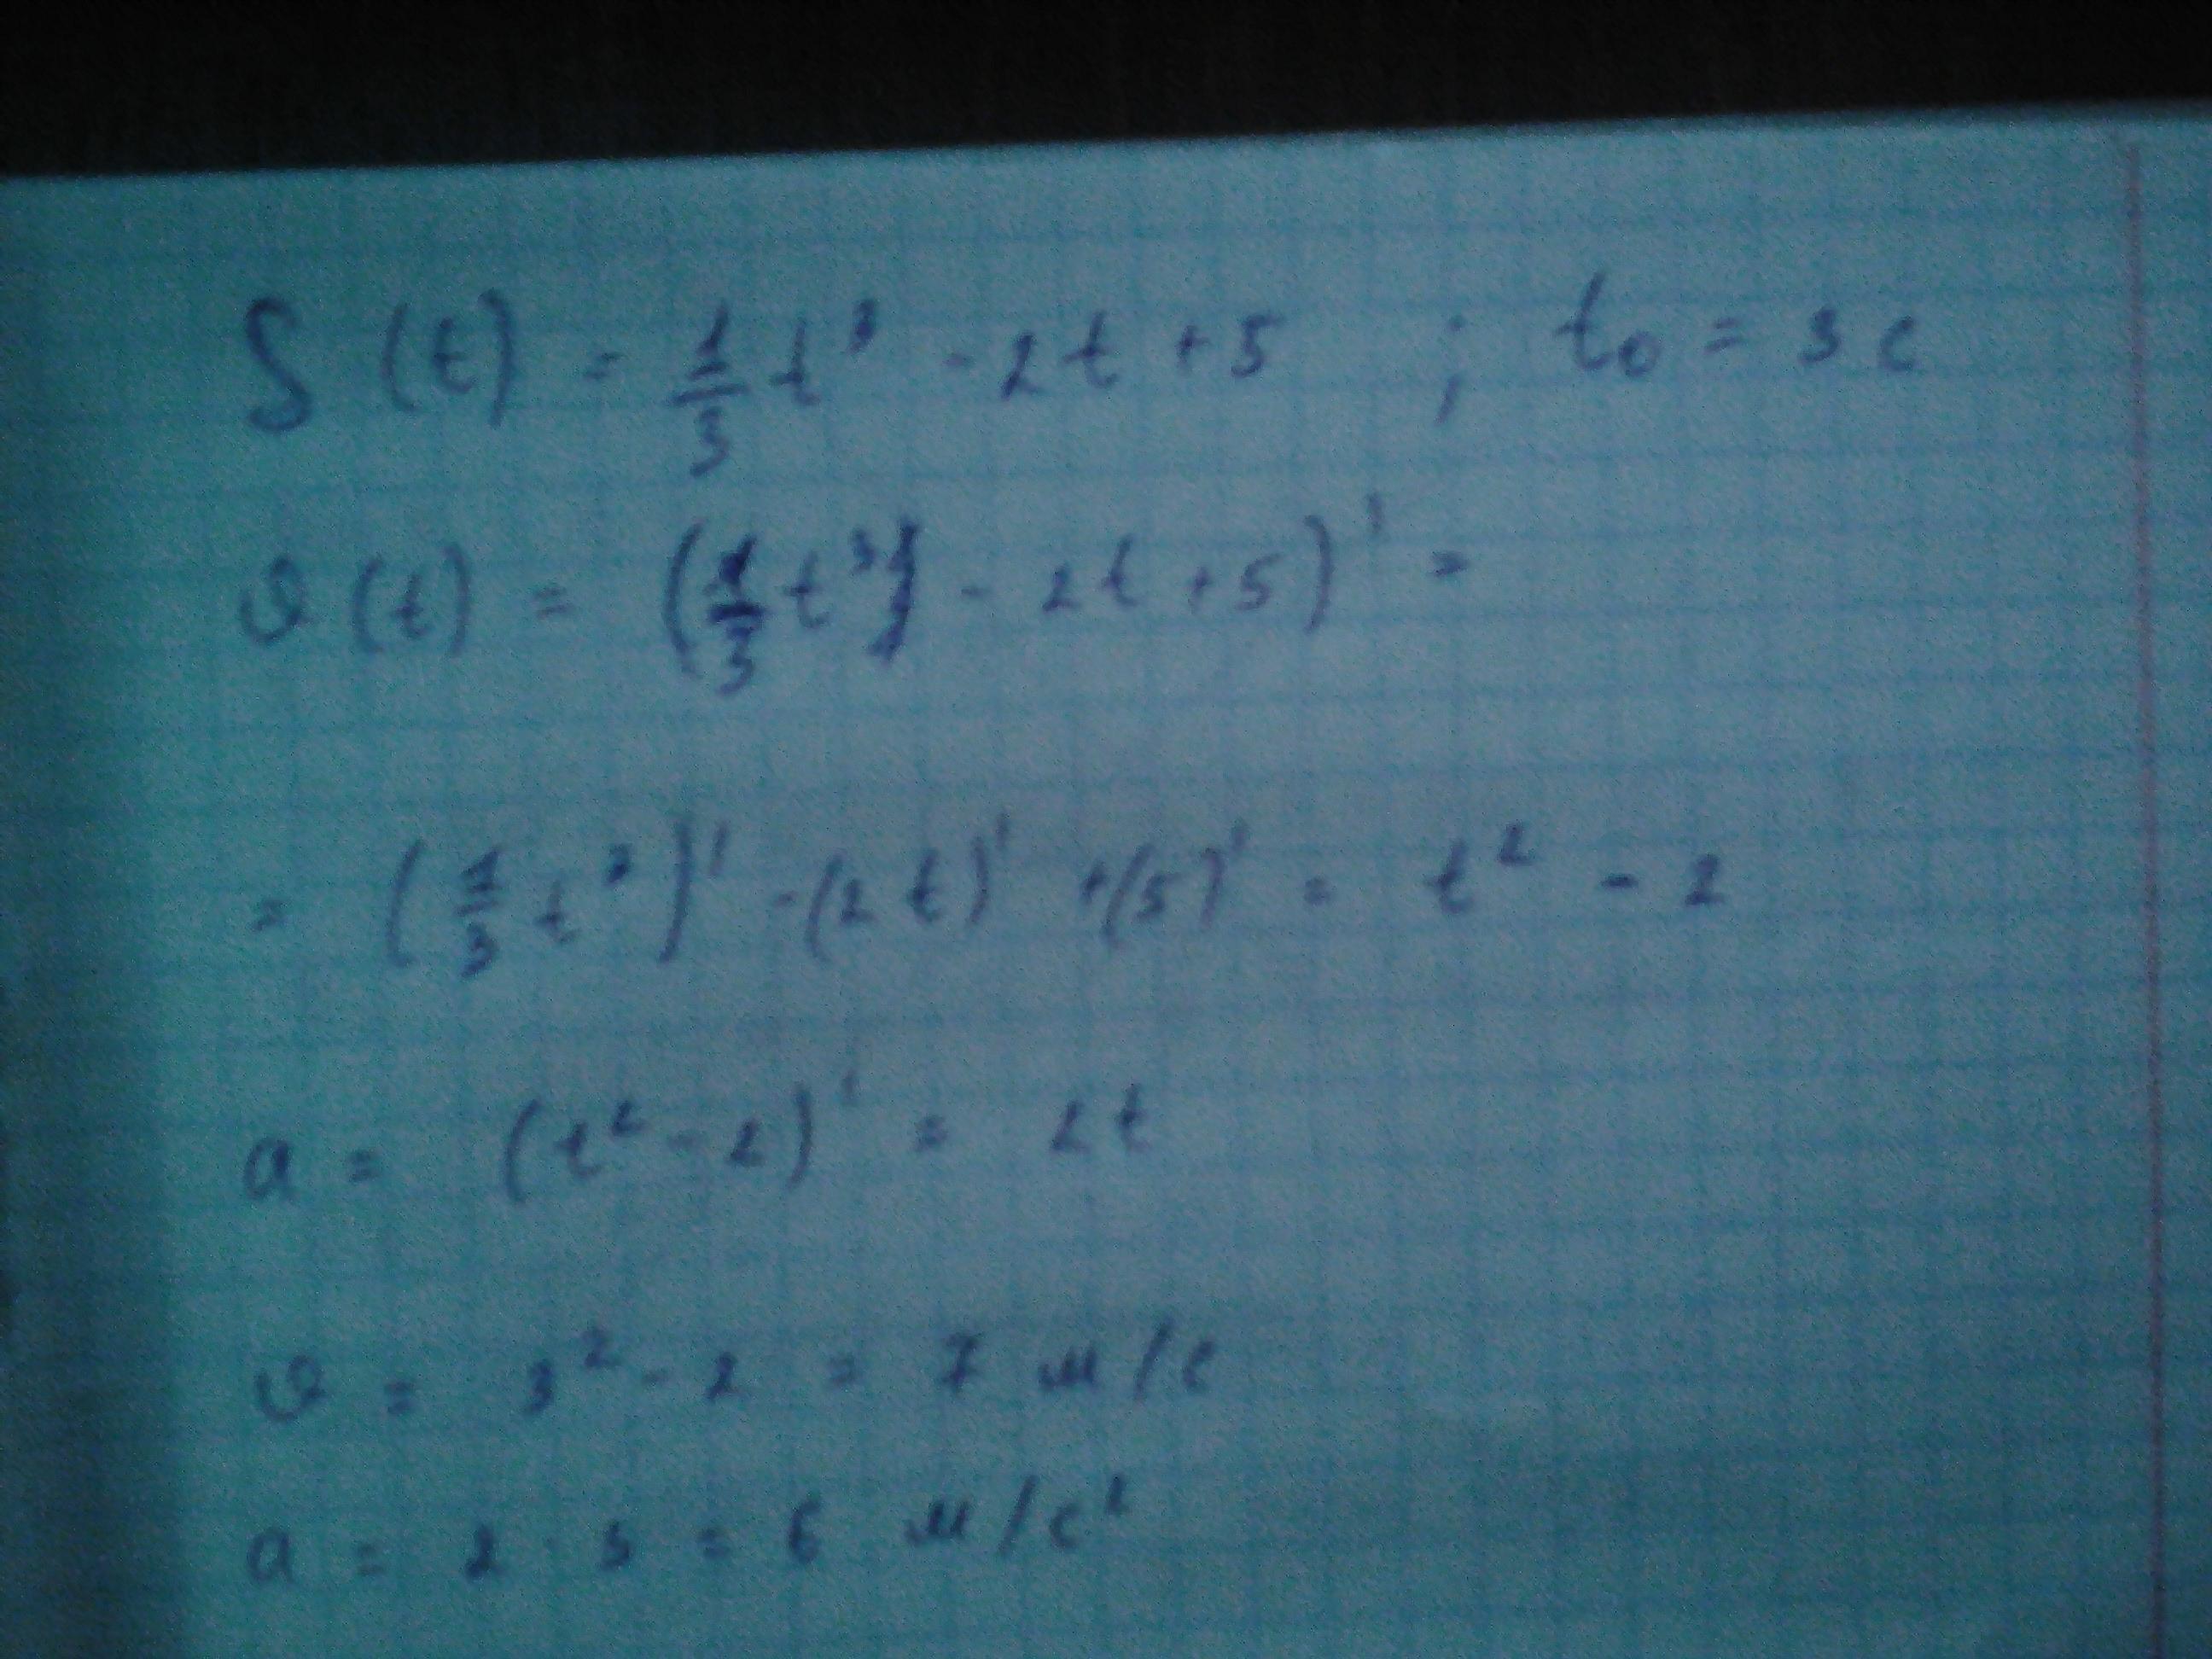 S(t) = 1/3 t³ - 2t + 5 ; t₀ = 3 с
υ(t) = (1/3 t³ - 2t + 5)' =
= (1/3 t³)' - (2t)' + (5)' = t² - 2
a = (t² - 2)' = 2t
υ = 3² - 2 = 7 м/с
a = 2 · 3 = 6 м/с²